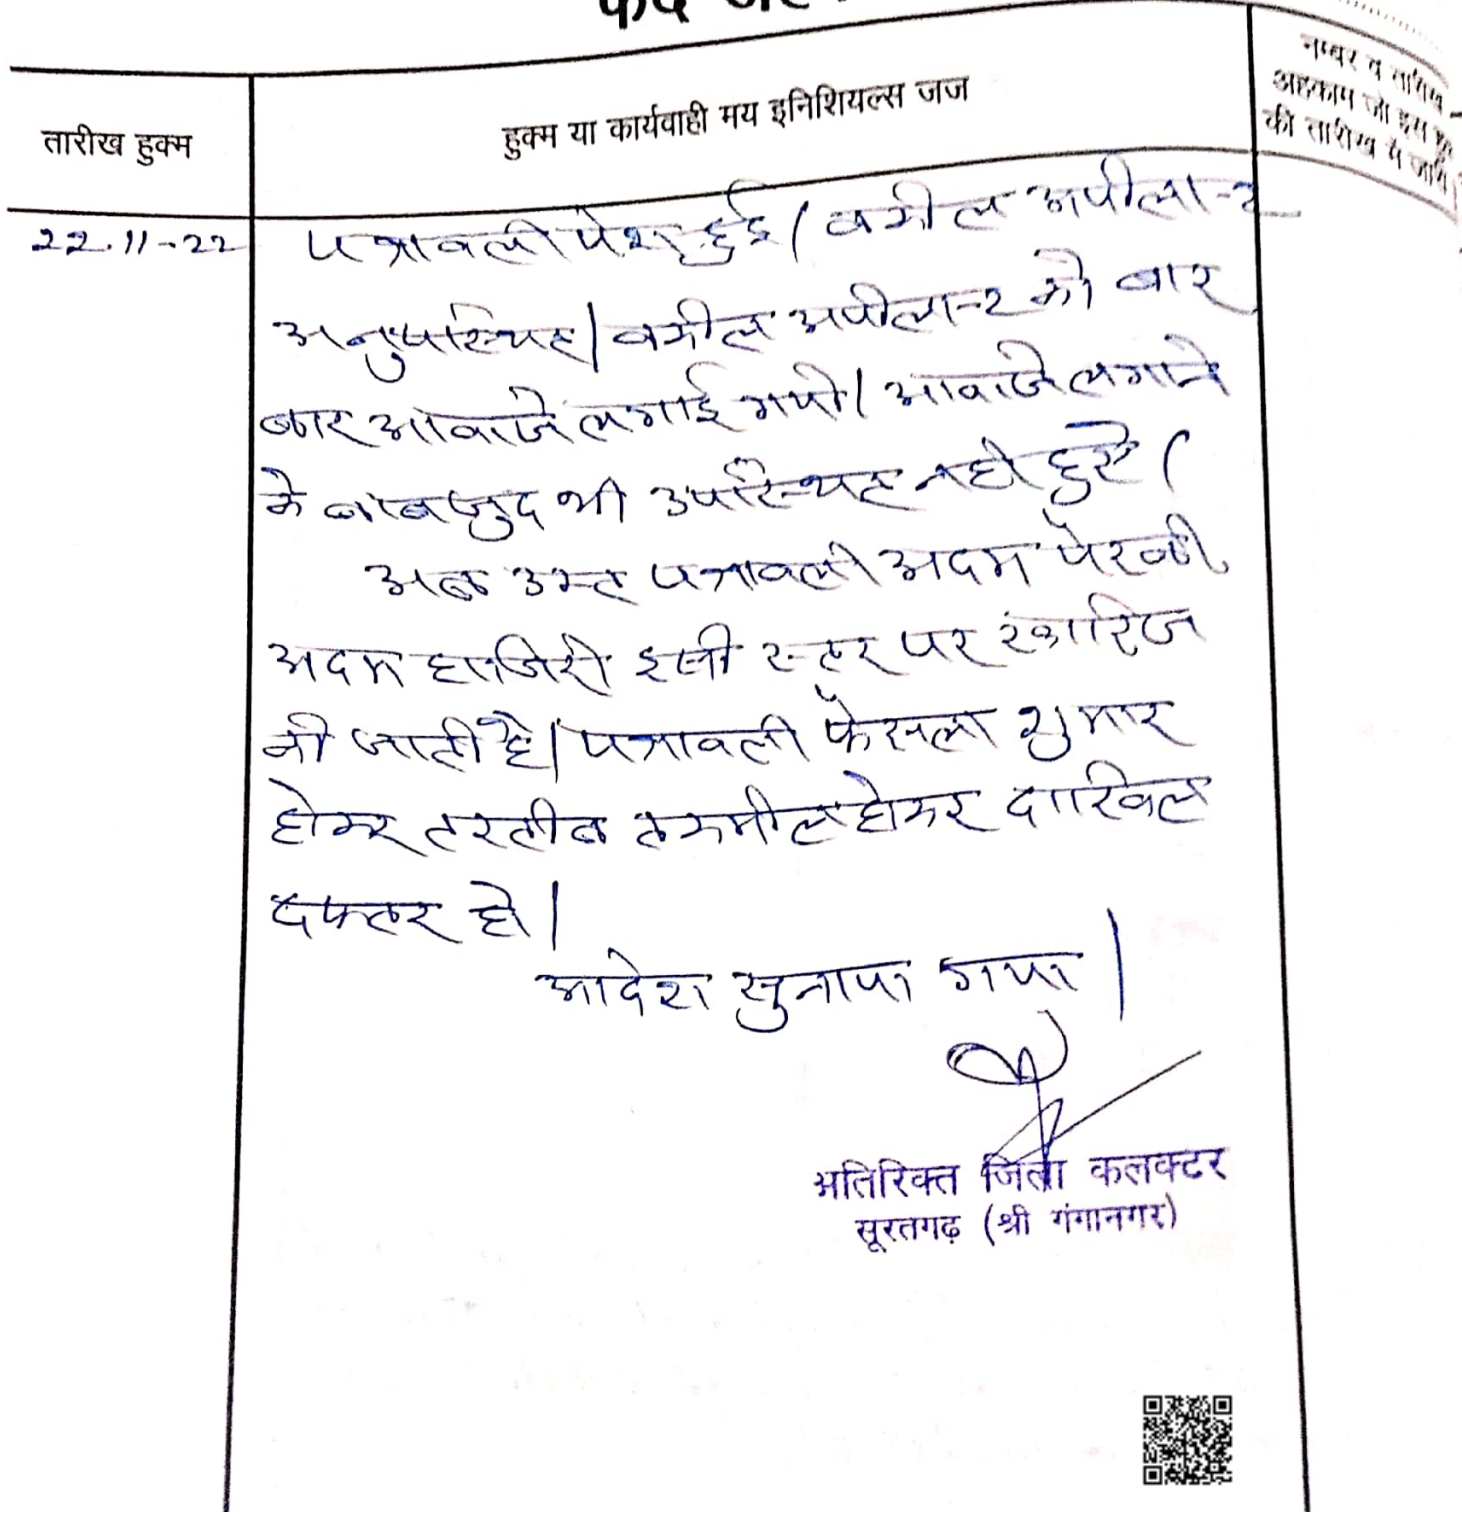 तारीख हुक्म
हुक्म या कार्यवाही मय इनिशियल्स जज
नम्बर व तारीख
अहकाम जो इस
की तारीख में जारी
22.11-22
पत्रावली पेश हुई। वकील अपीलान्ट
अनुपस्थित। वकील अपीलान्ट को बार
बार आवाजे लगाई गयी। आवाजे लगाने
के बावजुद भी उपस्थित नही हुए।
अतः उक्त पत्रावली अदम पैरवी
अदम हाजिरी इसी स्तर पर खारिज
की जाती है। पत्रावली फैसला शुमार
होकर तरतीब तकमील होकर दाखिल
दफ्तर हो।
आदेश सुनाया गया।
अतिरिक्त जिला कलक्टर
सूरतगढ़ (श्री गंगानगर)